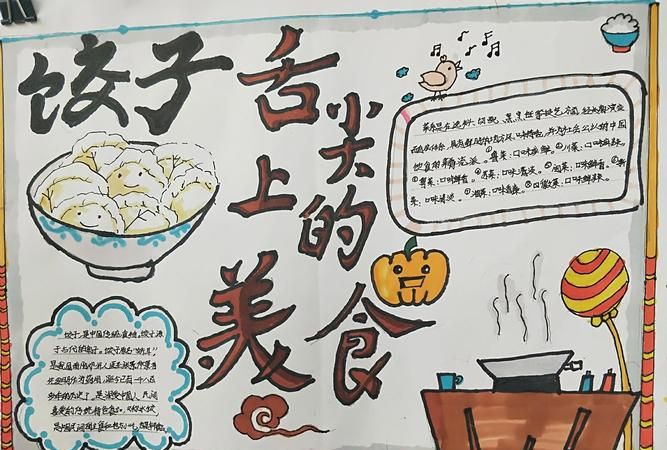 饺子
舌尖上的美食
菜系是在选料、切配、烹饪等技艺方面,经长期演变
而自成体系,具有鲜明的地方风味特色,并为社会公认的中国
饮食的菜肴流派。①鲁菜:口味咸鲜。②川菜:口味麻辣。
③粤菜:口味鲜香。④苏菜:口味清淡。⑤闽菜:口味鲜香。⑥浙
菜:口味清淡。⑦湘菜:口味香辣。⑧徽菜:口味鲜辣。
饺子,是中国传统食物。饺子源
于古代的角子。饺子原名"娇耳",
是我国南阳
多年的历史了。是深受中国人民
喜爱的传统特色食品,又称水饺,
是中国民间的主食和地方小吃,